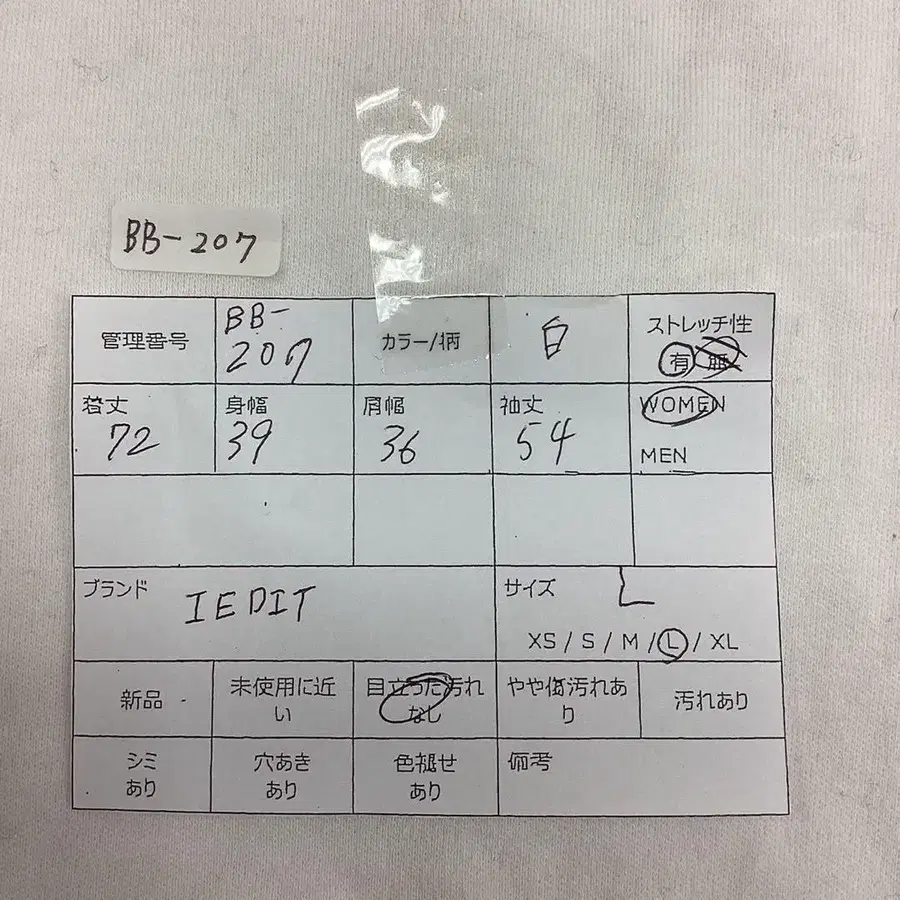 BB-207
管理番号
BB-
207
カラー/柄
白
ストレッチ性
有 無
着丈
72
身幅
39
肩幅
36
袖丈
54
WOMEN
MEN
ブランド
IEDIT
サイズ
L
XS / S / M / L / XL
新品
未使用に近
い
目立った汚れ
なし
やや傷汚れあ
り
汚れあり
シミ
あり
穴あき
あり
色褪せ
あり
備考